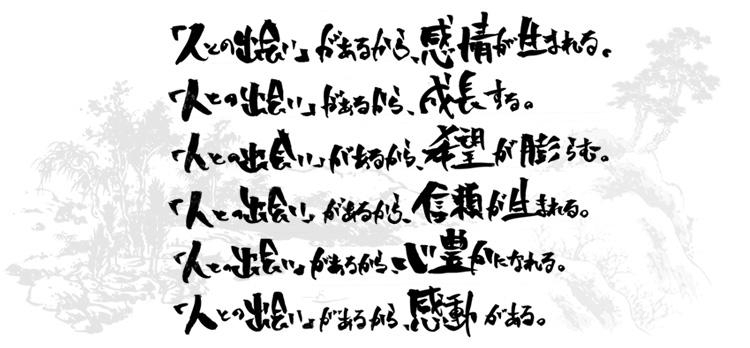 「人との出会い」があるから、感情が生まれる。
「人との出会い」があるから、成長する。
「人との出会い」があるから、希望が膨らむ。
「人との出会い」があるから、信頼が生まれる。
「人との出会い」があるから、心豊かになれる。
「人との出会い」があるから、感動がある。